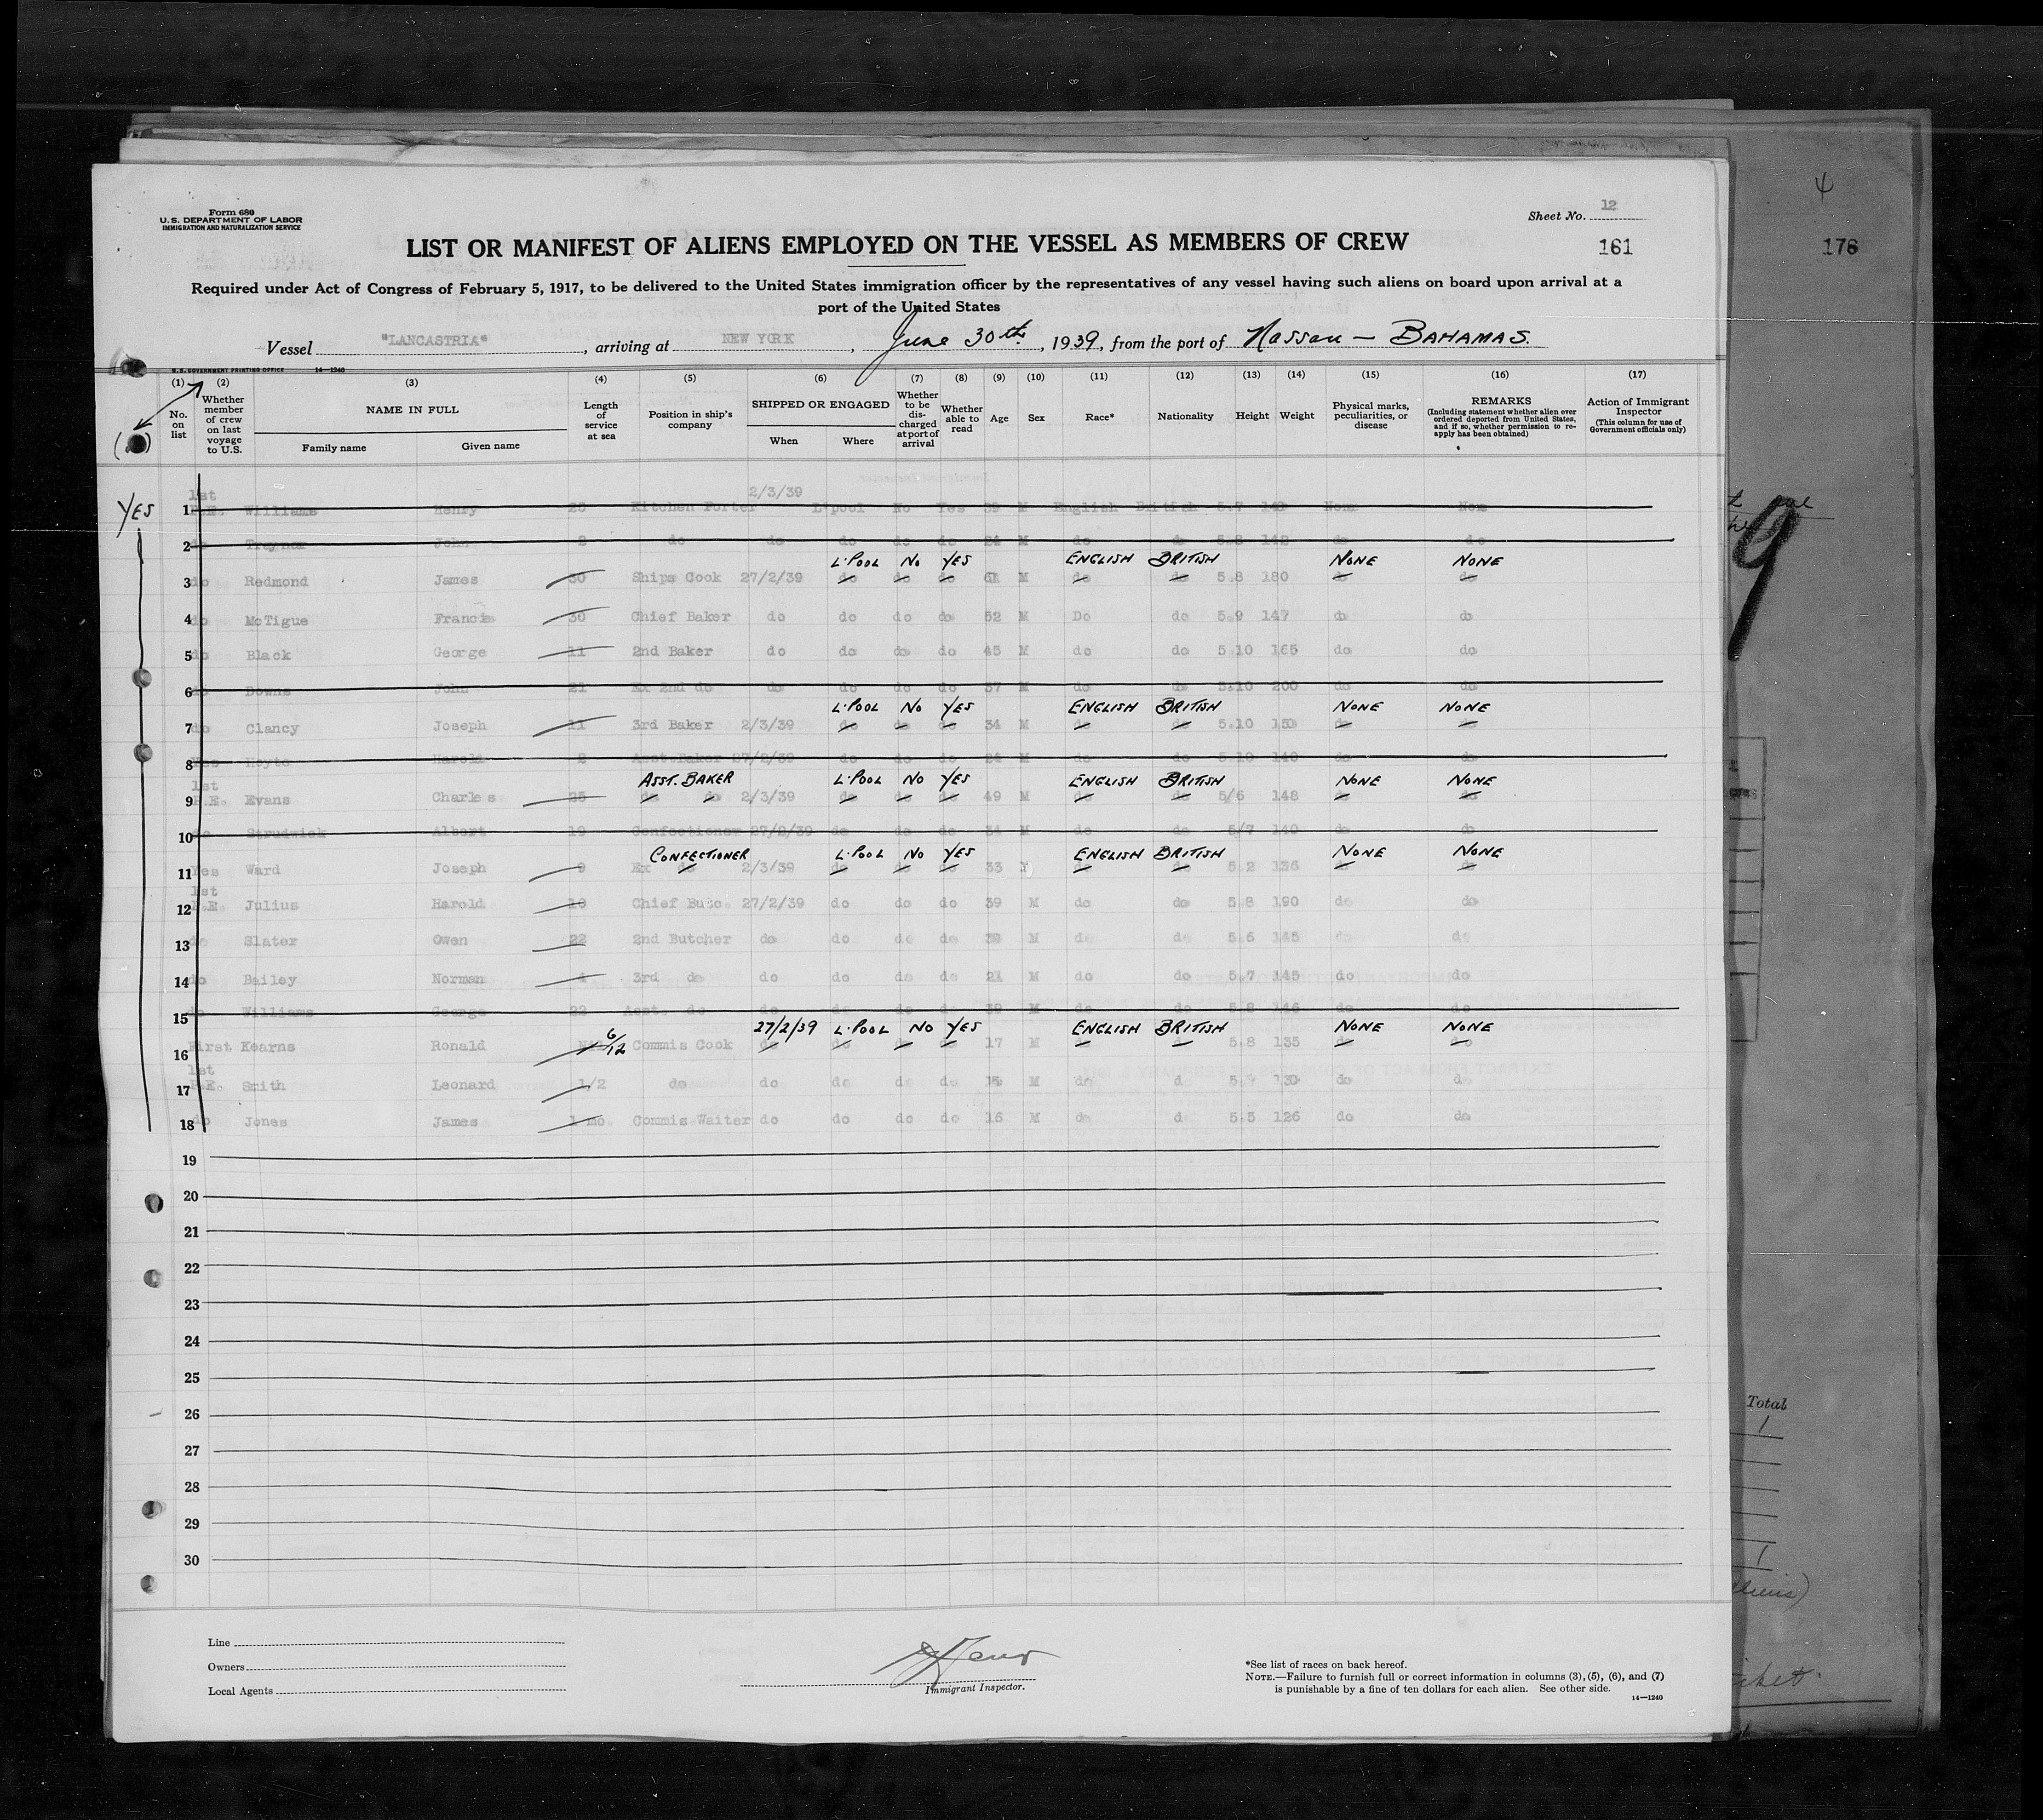 Form 680
U. S. DEPARTMENT OF LABOR
IMMIGRATION AND NATURALIZATION SERVICE
Sheet No. 12
161
176
LIST OR MANIFEST OF ALIENS EMPLOYED ON THE VESSEL AS MEMBERS OF CREW
Required under Act of Congress of February 5, 1917, to be delivered to the United States immigration officer by the representatives of any vessel having such aliens on board upon arrival at a
port of the United States
Vessel "LANCASTRIA", arriving at NEW YORK, June 30th, 1939, from the port of Nassau — BAHAMAS.
U. S. GOVERNMENT PRINTING OFFICE 14—1240
(1) (2) (3) (4) (5) (6) (7) (8) (9) (10) (11) (12) (13) (14) (15) (16) (17)
No. on list
Whether member of crew on last voyage to U.S.
NAME IN FULL
Family name Given name
Length of service at sea
Position in ship's company
SHIPPED OR ENGAGED
When Where
Whether to be discharged at port of arrival
Whether able to read
Age Sex Race* Nationality Height Weight
Physical marks, peculiarities, or disease
REMARKS
(Including statement whether alien ever ordered deported from United States, and if so, whether permission to re-apply has been obtained)
Action of Immigrant Inspector
(This column for use of Government officials only)
YES
1st 2/3/39
1 Williams Henry Kitchen Porter L'pool No Yes 39 M English British 5.7 None None
2 do Traynor John 2 do do do do do 24 M do do 5.8 142 do do
L'POOL NO YES ENGLISH BRITISH NONE NONE
3 do Redmond James 30 Ships Cook 27/2/39 do do do 61 M do do 5.8 180 do do
4 do McTigue Francis 30 Chief Baker do do do do 52 M Do do 5.9 147 do do
5 do Black George 11 2nd Baker do do do do 45 M do do 5.10 165 do do
6 do Downs John 21 Ex 2nd do do do do do 37 M do do 5.10 200 do do
L'POOL NO YES ENGLISH BRITISH NONE NONE
7 do Clancy Joseph 11 3rd Baker 2/3/39 do do do 34 M do do 5.10 150 do do
8 Yes Hoyte Harold 2 Asst.Baker 27/2/39 do do do 24 M do do 5.10 140 do do
ASST. BAKER L'POOL NO YES ENGLISH BRITISH NONE NONE
1st
9 P.E. Evans Charles 25 do do 2/3/39 do do do 49 M do do 5/6 148 do do
10 do Strudwick Albert 19 Confectioner 27/2/39 do do do 34 M do do 5/7 140 do do
CONFECTIONER L'POOL NO YES ENGLISH BRITISH NONE NONE
11 Yes Ward Joseph 9 Ex do 2/3/39 do do do 33 do do 5.2 136 do do
1st
12 P.E. Julius Harold 18 Chief Butc. 27/2/39 do do do 39 M do do 5.8 190 do do
13 do Slater Owen 22 2nd Butcher do do do do 38 M do do 5.6 145 do do
14 do Bailey Norman 4 3rd do do do do do 21 M do do 5.7 145 do do
15 do Williams George 22 Asst. do do do do do 39 M do do 5.8 146 do do
6/12 27/2/39 L'POOL NO YES ENGLISH BRITISH NONE NONE
16 First Kearns Ronald Commis Cook do do do do 17 M do do 5.8 135 do do
1st
17 P.E. Smith Leonard 1/2 do do do do do M do d 130 do d
18 do Jones James 1 mo. Commis Waiter do do do do 16 M do d 5.5 126 do do
19
20
21
22
23
24
25
26
27
28
29
30
Total
Line
Owners
Local Agents
Immigrant Inspector.
*See list of races on back hereof.
NOTE.—Failure to furnish full or correct information in columns (3), (5), (6), and (7)
is punishable by a fine of ten dollars for each alien. See other side.
14—1240